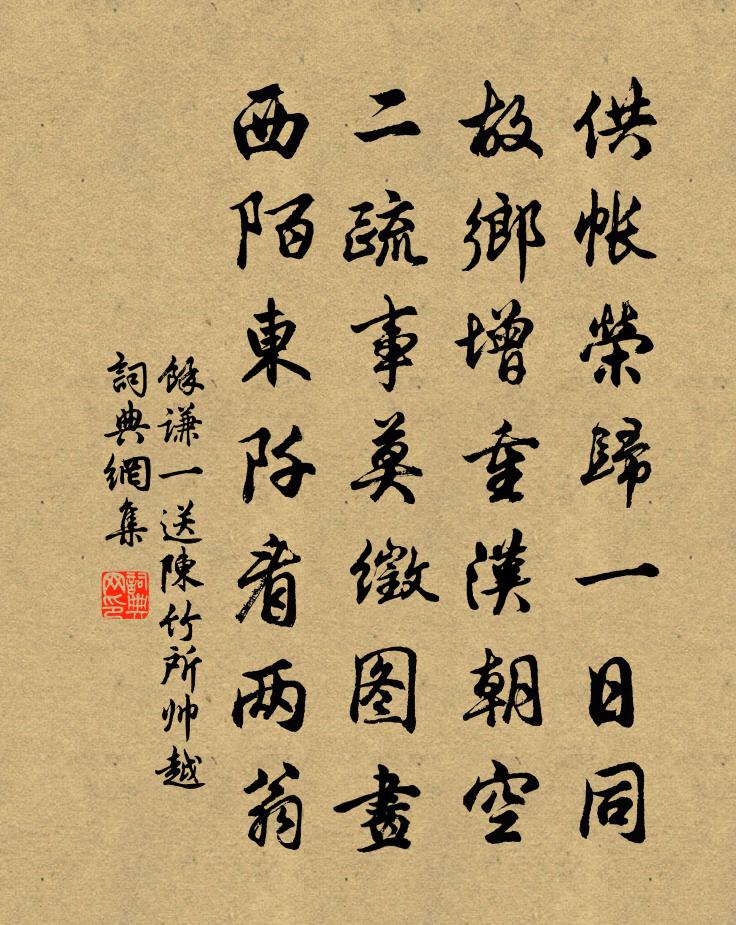 供帐榮歸一日同
故鄉增重漢朝空
二疏事莫徵图畫
西陌東阡看两翁
餘謙一送陳竹所帅越
詞典網集
詞典网印